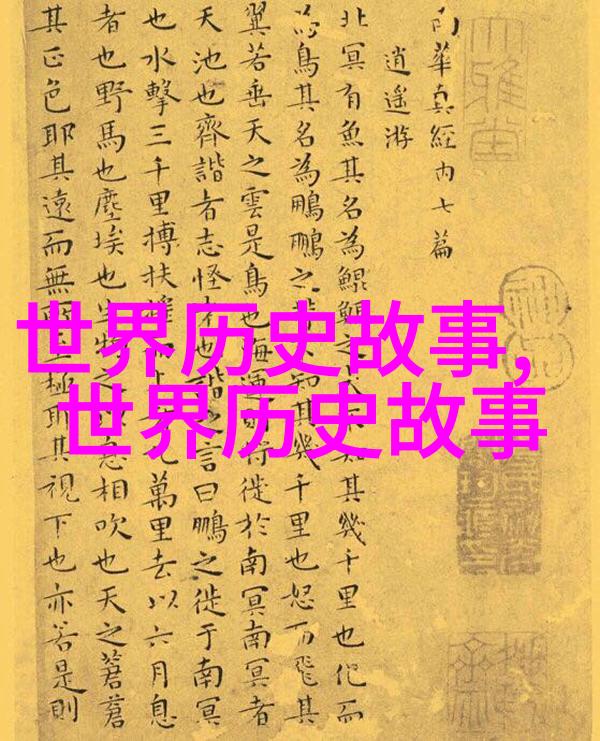 南華真經內七篇
逍遙游
北冥有魚其名為鯤鯤之大 其幾千里也化而
為鳥其名為鵬鵬之背 知其幾千里也怒而飛其
翼若垂天之雲是鳥也海運 將徙於南冥南冥者
天池也齊諧者志怪者也諧之言曰鵬之徙于南冥
也水擊三千里搏扶搖 九萬里去以六月息
者也野馬也塵埃也生物之 息相吹也天之蒼蒼
其正色耶其遠而無 極耶其視下也亦若是則
世界历史故事,
世界历史故事